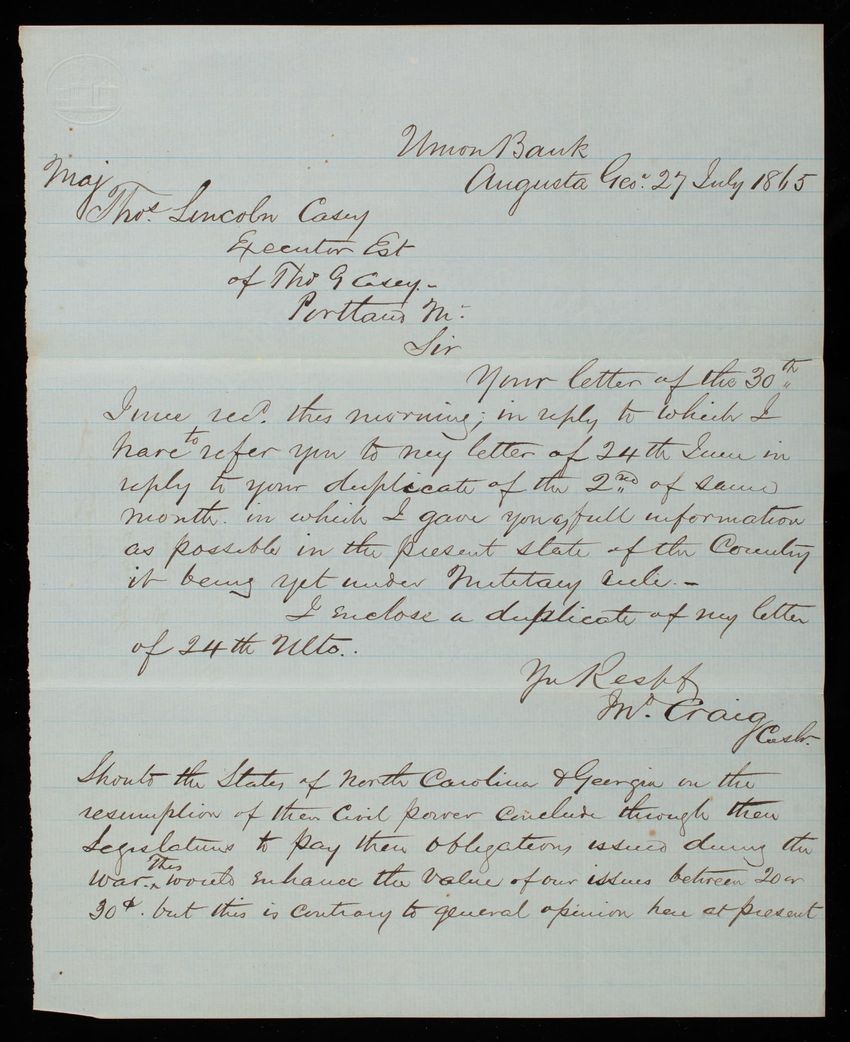 Union Bank
Augusta Geo. 27 July 1865
Maj
Thos. Lincoln Casey
Executor Est
of Tho G Casey.-
Portland M.
Sir
Your letter of the 30th
June recd. this morning; in reply to which I
have to refer you to my letter of 24th June in
reply to your duplicate of the 2nd of same
month. in which I gave you as full information
as possible in the present state of the Country
it being yet under Military rule.-
I enclose a duplicate of my letter
of 24th Ulto..
Yr Respf
Jno. Craig
Cashr.
Should the States of North Carolina & Georgia on the
resumption of their Civil power conclude through their
Legislatures to pay their obligations issued during the
war. This would enhance the value of our issues between 20 or
30¢. but this is contrary to general opinion here at present